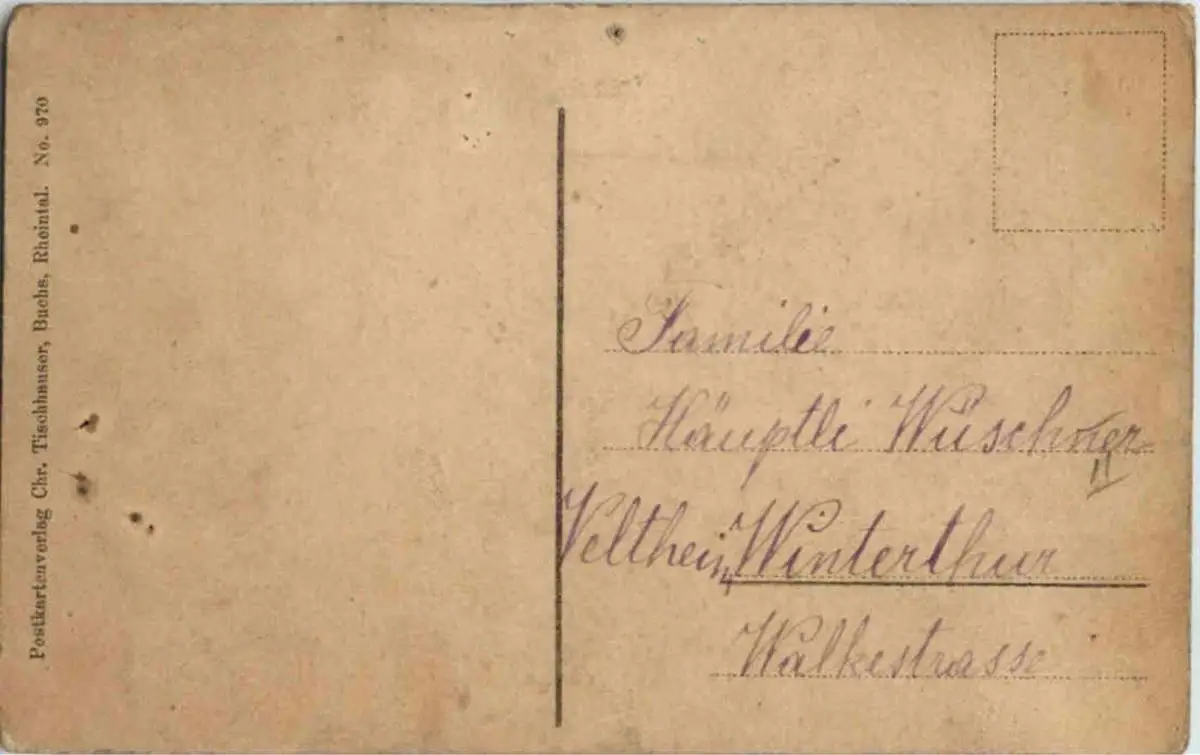 Postkartenverlag Chr. Tischhauser, Buchs, Rheintal. No. 970
Familie
Häuptli Wüschner
Veltheim, Winterthur
Walkestrasse